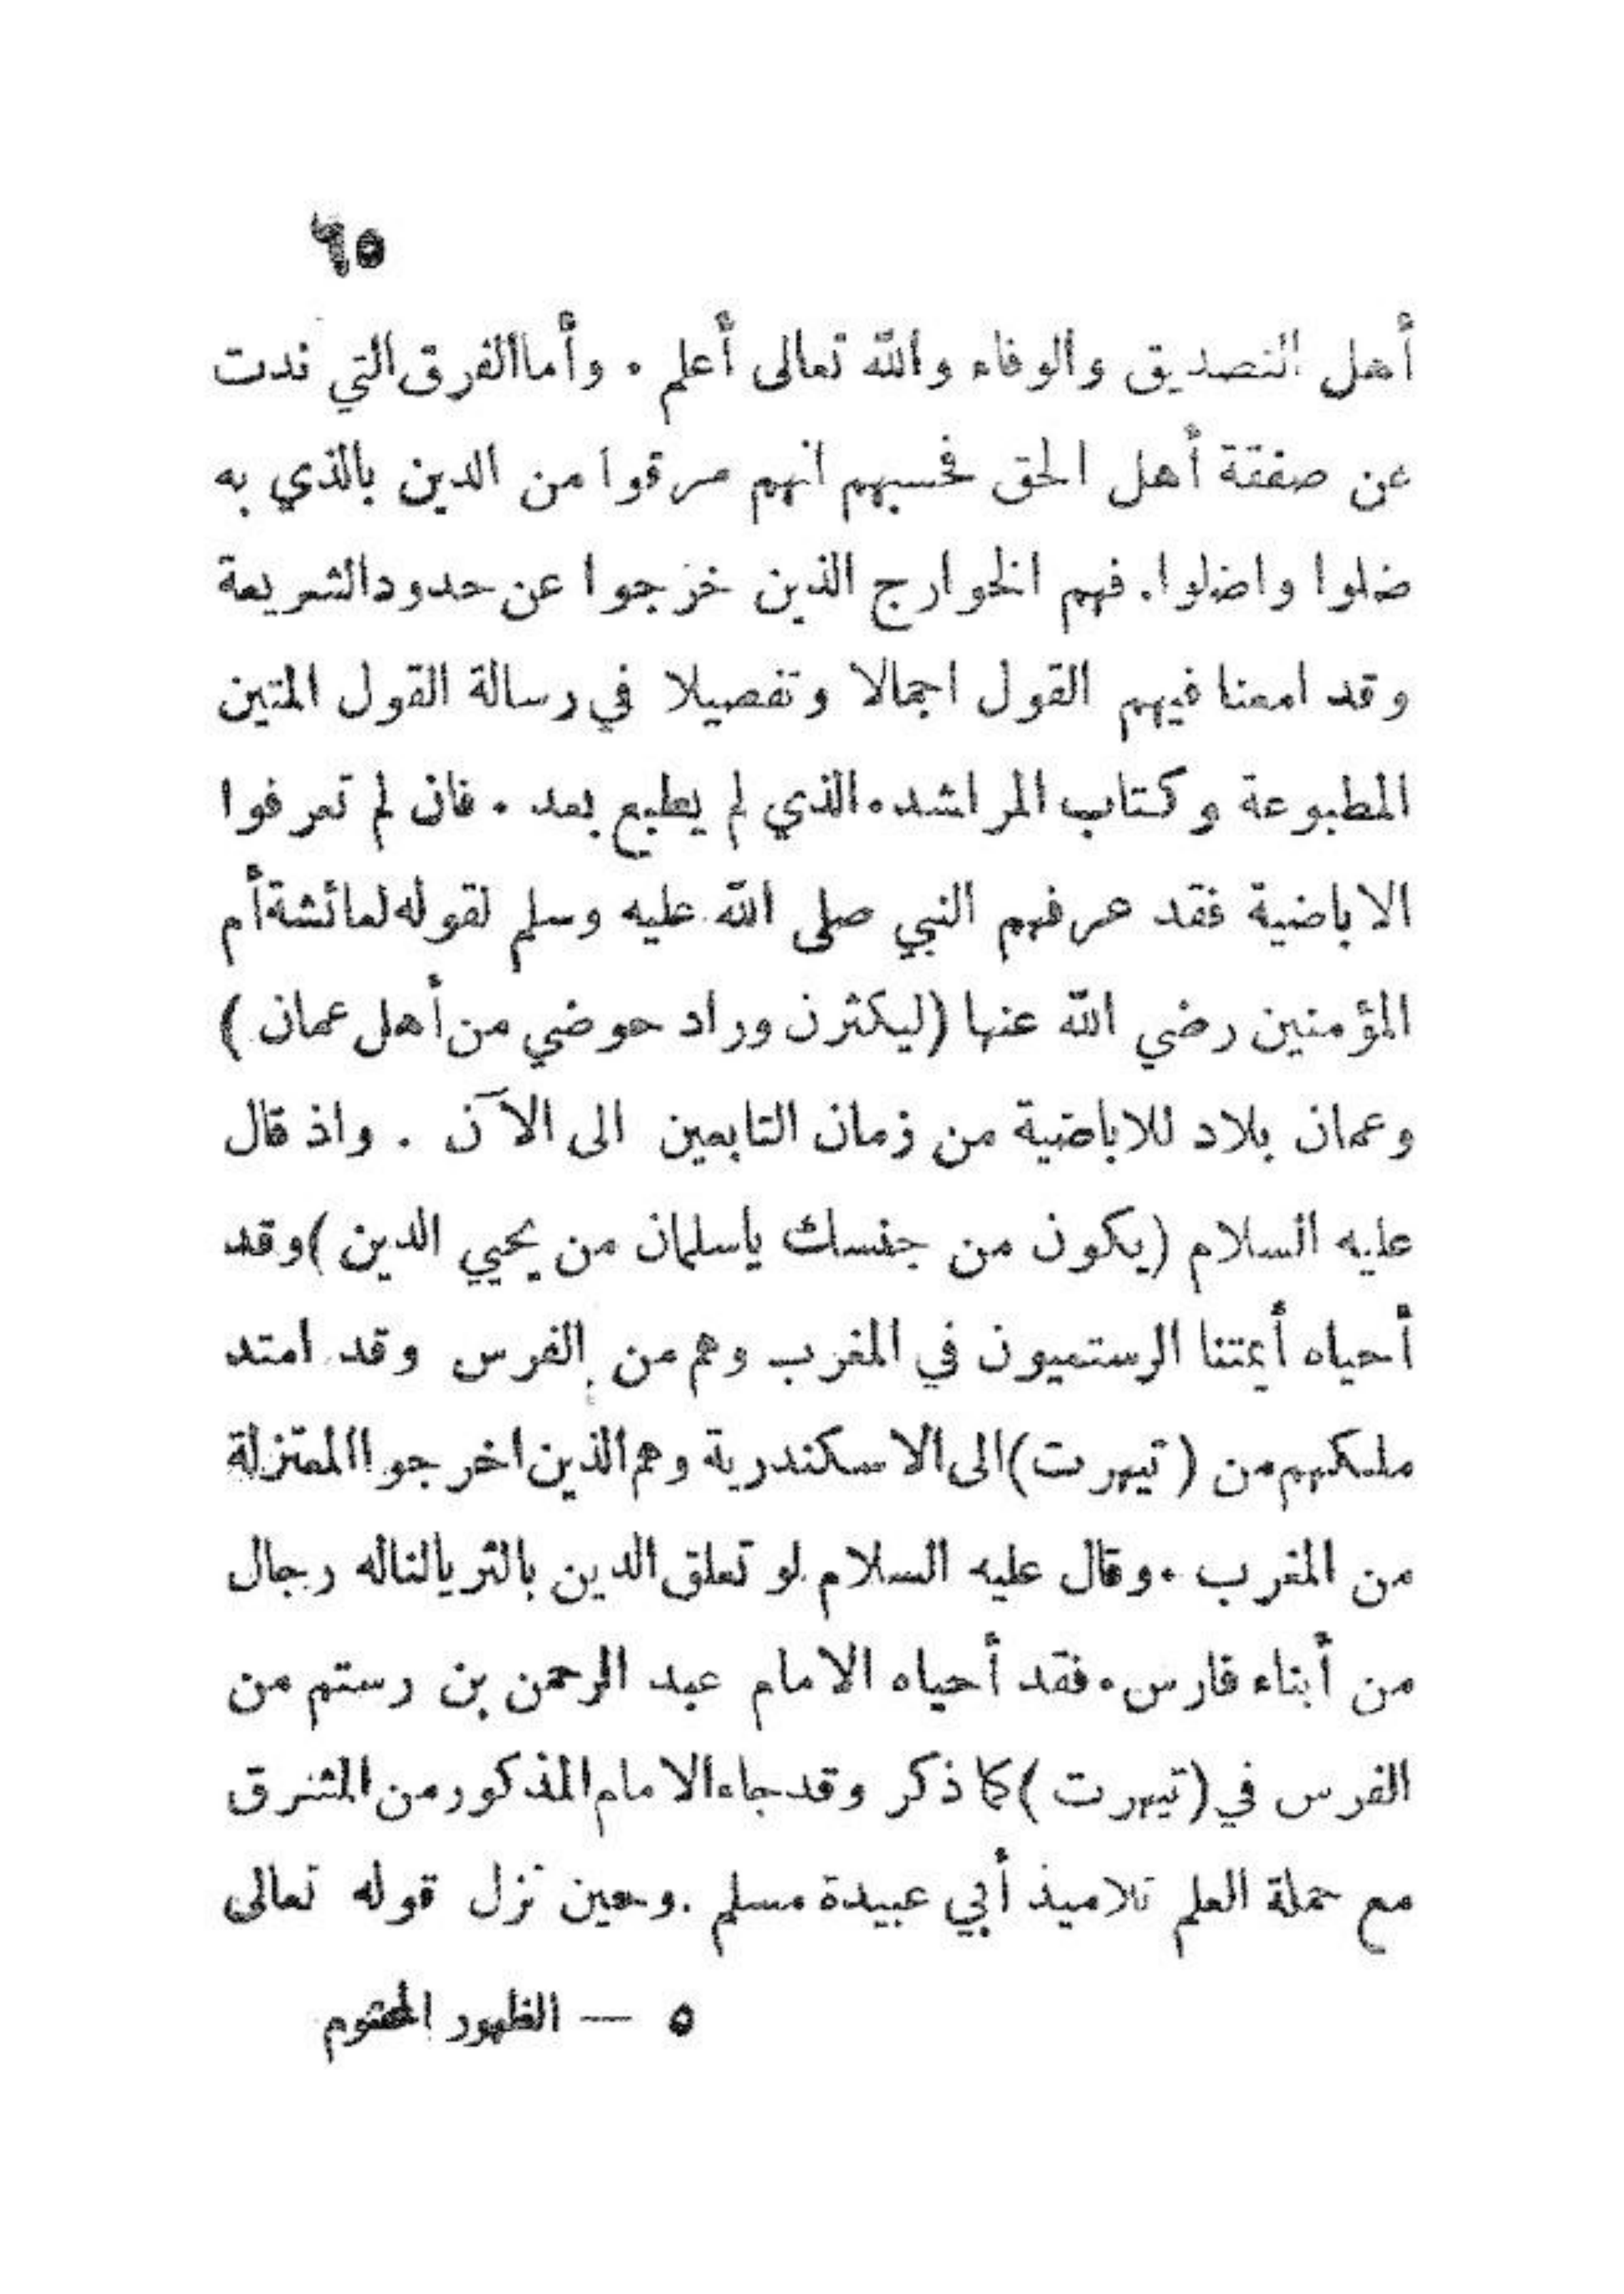 ٦٥
أهل التصديق والوفاء والله تعالى أعلم . وأما الفرق التي ندت
عن صفقة أهل الحق فحسبهم انهم مرقوا من الدين بالذي به
ضلوا واضلوا. فهم الخوارج الذين خرجوا عن حدود الشريعة
وقد امعنا فيهم القول اجمالا وتفصيلا في رسالة القول المتين
المطبوعة وكتاب المراشد . الذي لم يطبع بعد . فان لم تعرفوا
الاباضية فقد عرفهم النبي صلى الله عليه وسلم لقوله لعائشة أم
المؤمنين رضي الله عنها (ليكثرن وراد حوضي من أهل عمان )
وعمان بلاد للاباضية من زمان التابعين الى الآن . واذ قال
عليه السلام (يكون من جنسك ياسلمان من يحيي الدين )وقد
أحياه أيمتنا الرستميون في المغرب وهم من الفرس وقد امتد
ملكهم من ( تيهرت )الى الاسكندرية وهم الذين اخرجوا المعتزلة
من المغرب . وقال عليه السلام لو تعلق الدين بالثريا لناله رجال
من أبناء فارس . فقد أحياه الامام عبد الرحمن بن رستم من
الفرس في (تيهرت )كما ذكر وقد جاء الامام المذكور من المشرق
مع حملة العلم تلاميذ أبي عبيدة مسلم . وحين نزل قوله تعالى
٥ — الظهور المحتوم